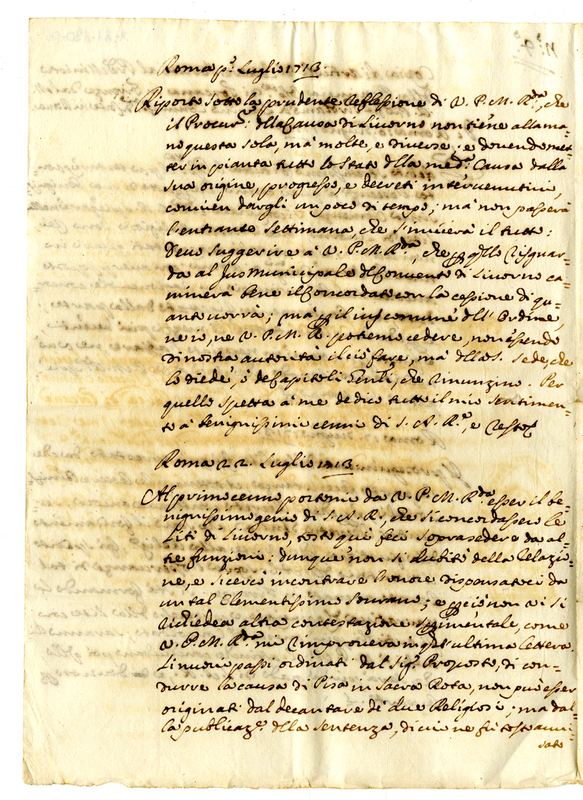 N.° 9.°
Roma p.° Luglio 1713:
Riporto sotto la prudente reflessione di V. P. M. R.da, che
il Procur.re della Causa di Livorno non tiene alla ma=
no questa sola, mà molte, e diverse; e dovendo met=
ter in pianta tutto lo stato della med.a Causa dalla
sua origine, progresso, e decreti intervenutivi,
convien dargli un poco di tempo; mà non passerà
l'entrante settimana, che s'invierà il tutto:
Devo suggerire à V. P. M. R.da, che per q.llo risguar=
da al Jus Municipale del Convento di Livorno ca=
minerà bene il Concordato con la cessione di qu=
anto vorrà; mà per il ius comune dell'Ordine,
ne io, ne V. P. M. R. potemo cedere, non essendo
di nostra autorità il ciò fare, mà della S. Sede, che
lo diede, ò de Capitoli Gen.li, che rinunzino. Per
quello spetta à me dedico tutto il mio sentimen=
to à benignissimi cenni di S. A. R.e, e resto
Roma 22. Luglio 1713:
Al primo cenno portomi da V. P. M. R.da esser il be=
nignissimo genio di S. A. R., che si concordassero le
Liti di Livorno, tosto quì feci soprasedere da al=
tre funzioni: dunque non si dubiti della relazio=
ne, e si cerca incontrare l'onore dispensatoci da
un tal Clementissimo Sovrano; e perciò non vi si
richiedea altra contestazione, come
V. P. M. R.da mi rimprovera in q.st'ultima lettera.
Li nuovi passi ordinati dal Sig.r Proposto, di con=
durre la causa di Pisa in Sacra Rota, non può esser
originati dal decantare di due Religiosi; mà dal=
la publicaz.e della sentenza, di cui ne fù tosto avvi=
sato